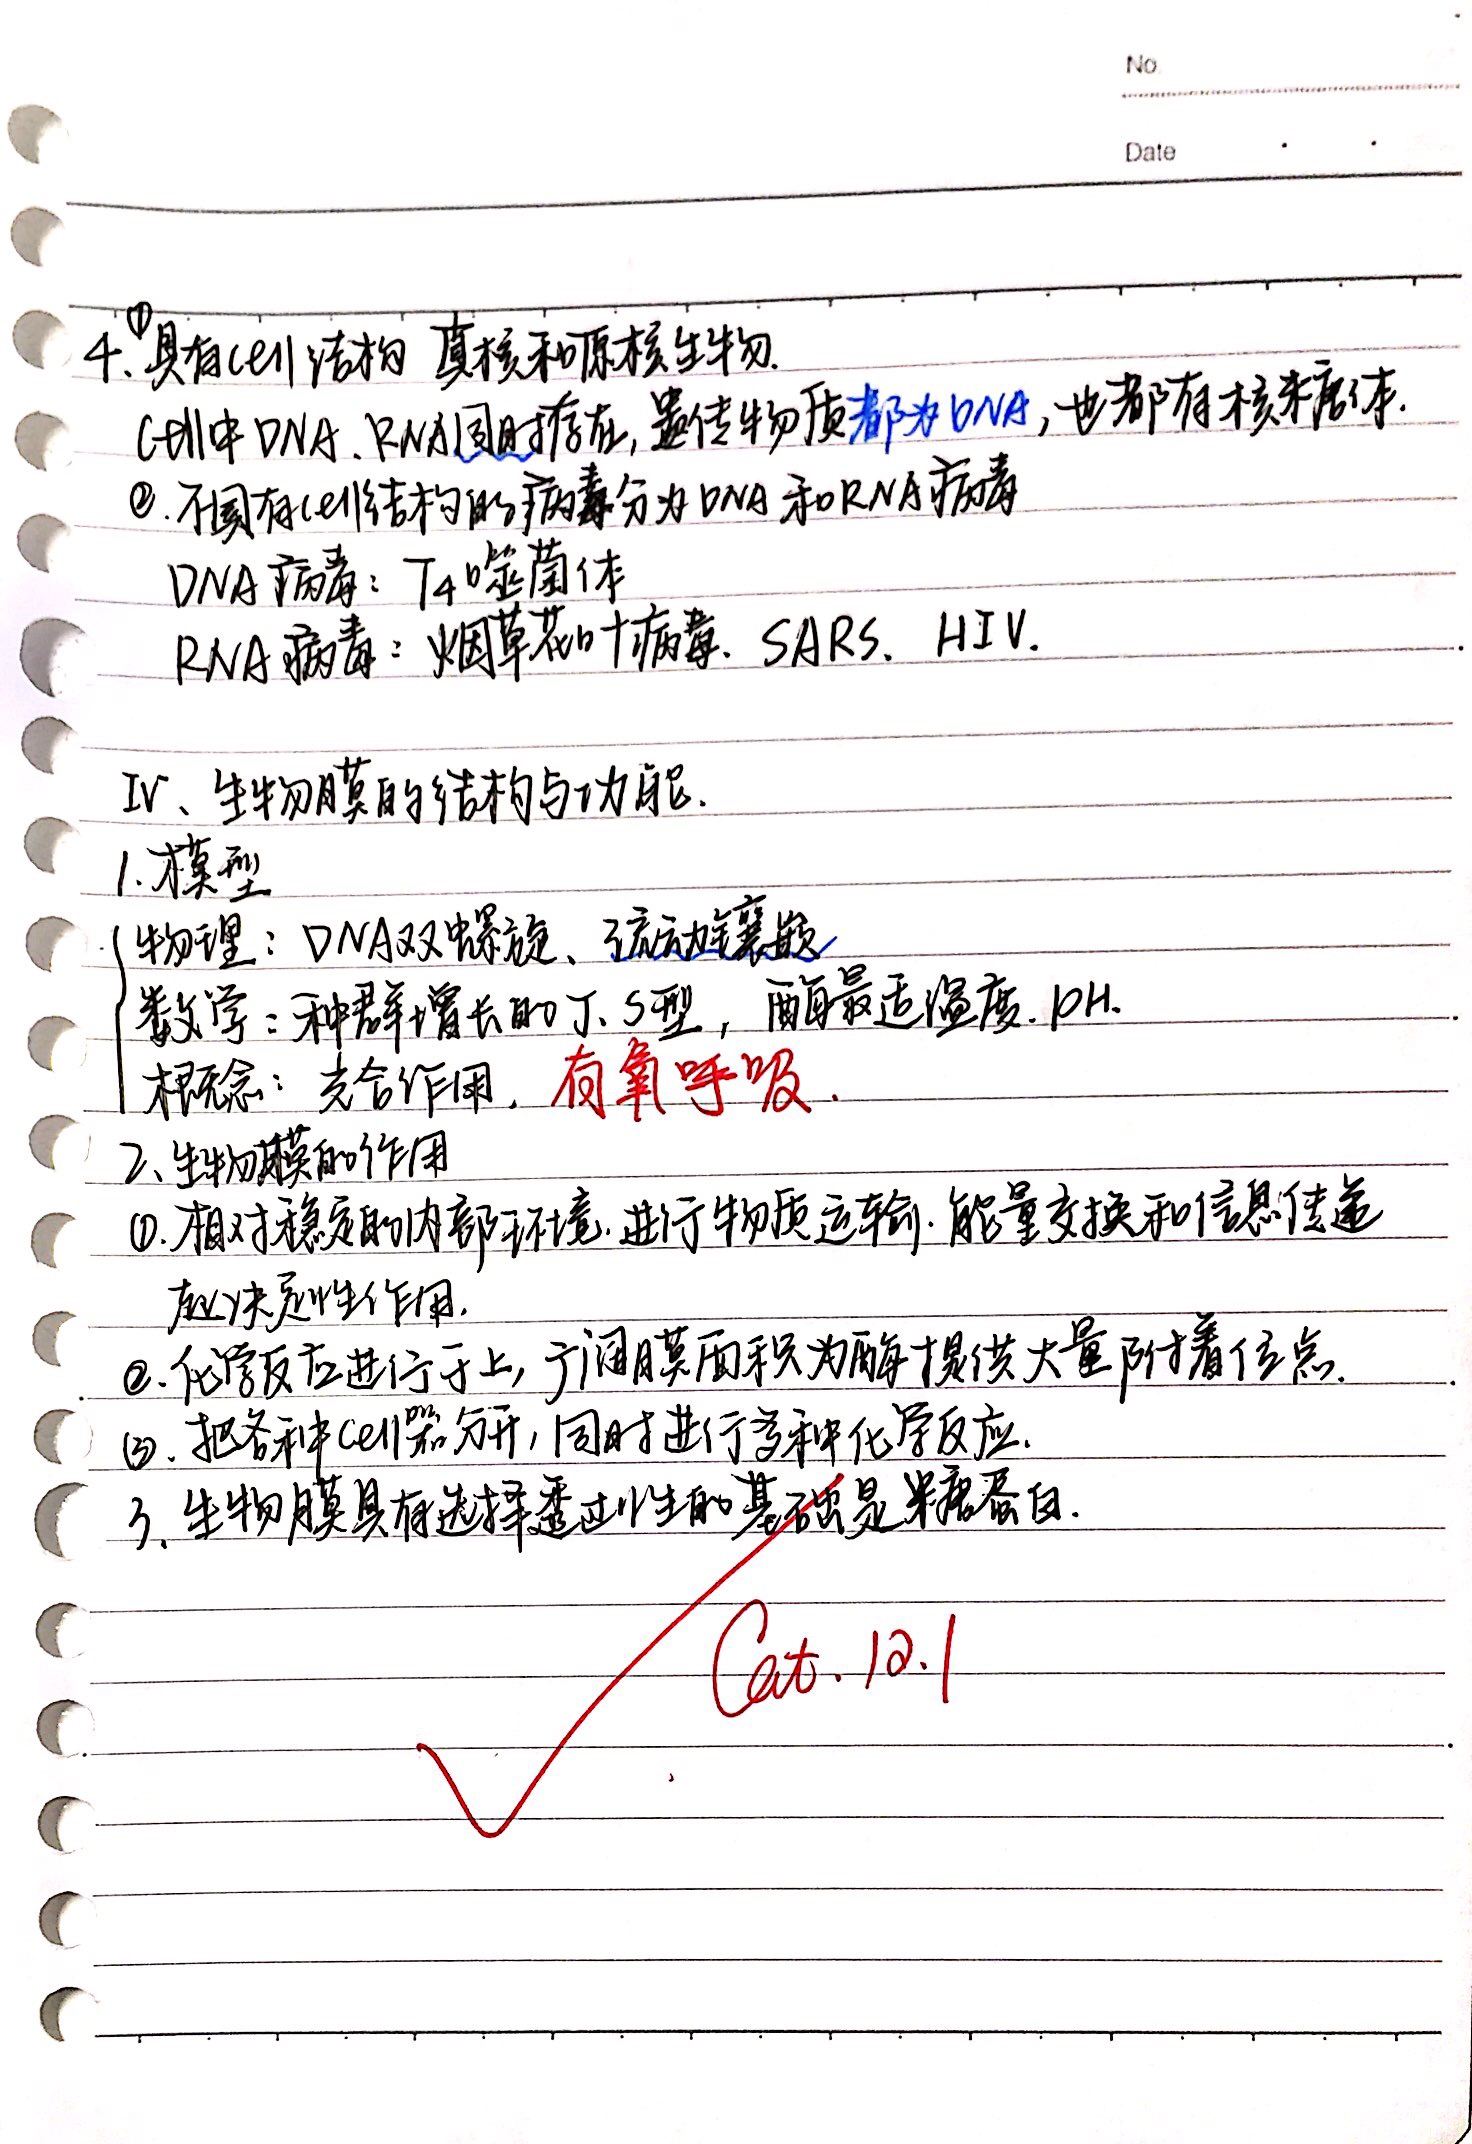 No.
Date
4、①具有cell结构 真核和原核生物.
Cell中DNA、RNA同时存在,遗传物质都为DNA,也都有核糖体.
②.不具有cell结构的病毒分为DNA和RNA病毒
DNA病毒: T4噬菌体
RNA病毒: 烟草花叶病毒、SARS、HIV.
IV、生物膜的结构与功能.
1.模型
物理: DNA双螺旋、流动镶嵌
数学: 种群增长的J、S型, 酶最适温度. pH.
概念: 光合作用. 有氧呼吸.
2、生物膜的作用
①.相对稳定的内部环境.进行物质运输.能量交换和信息传递
起决定性作用.
②.化学反应进行于上,广阔膜面积为酶提供大量附着位点.
③.把各种cell器分开,同时进行多种化学反应.
3、生物膜具有选择透过性的基础是糖蛋白.
Cat. 12.1